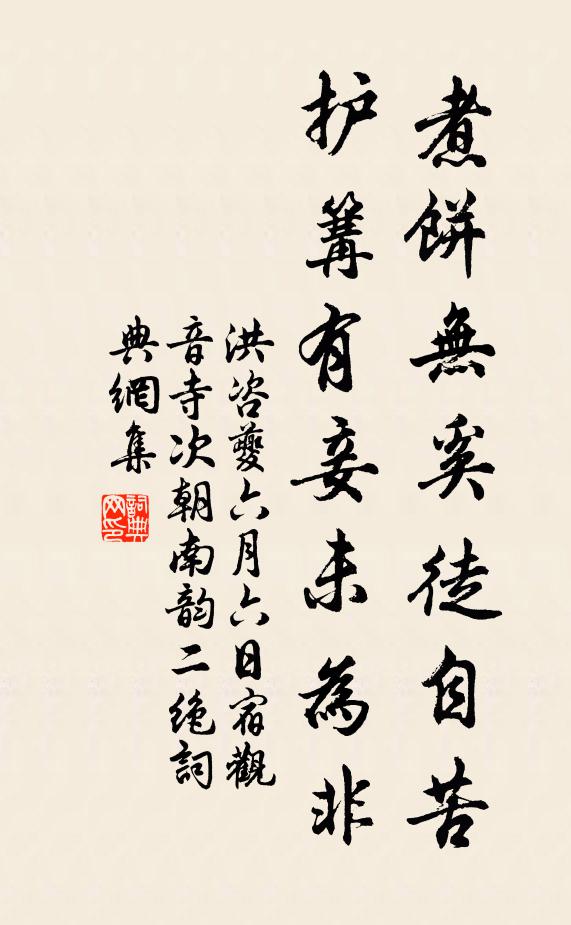 煮餅無奚徒自苦
护篝有妾未為非
洪咨夔六月六日宿觀
音寺次朝南韵二絶詞
典網集
詞典
网印